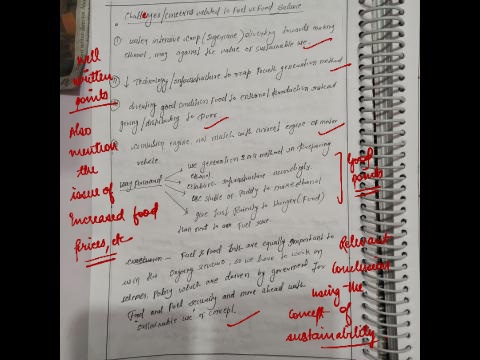 Challenges/concerns related to Fuel vs Food Balance
① water intensive crop (Sugarcane) diverting towards making
ethanol, may against the value of sustainable use.
② ↓ Technology/infrastructure to reap generation method
③ diverting good condition food to ethanol production instead
giving/distributing to poor
engine not match with current engine of motor
vehicle.
way forward
use generation method in preparing
ethanol
establish infrastructure accordingly.
use stubble of paddy to make ethanol
give first Priority to Hunger (Food)
than next to use Fuel
conclusion - Fuel & Food both are equally important to
use the ongoing so we have to work on
schemes, policy which are driven by government for
Food and Fuel security and move ahead with
sustainable use of concept.
well
written
points
Also
mention
the
issue of
Increased food
prices, etc
Good
points
Relevant
conclusion
using the
concept of
sustainability